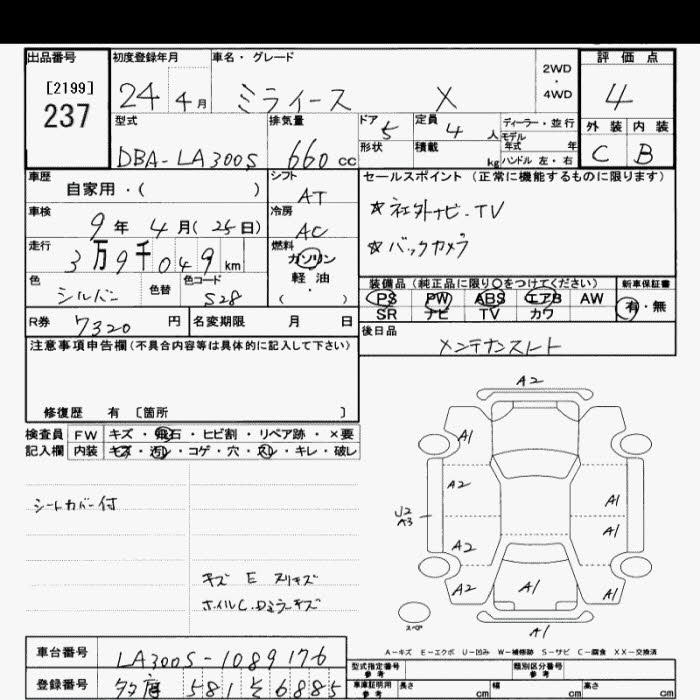 出品番号 初度登録年月 車名・グレード 2WD・4WD 評価点
[2199]
237
24 4月 ミライース X 4
型式 排気量 ドア 5 定員 4人 ディーラー・並行 外装 内装
モデル年式 年
DBA-LA300S 660cc 形状 積載 kg ハンドル 左・右 C B
車歴 自家用・( ) シフト AT
セールスポイント (正常に機能するものに限ります)
車検 9年 4月(25日) 冷房 AC
☆社外ナビ・TV
走行 3万9千049km 燃料 ガソリン 軽油 ( ・ )
☆バックカメラ
色 シルバー 色替 色コード S28
装備品(純正品に限り○をつけてください) 新車保証書
PS PW ABS エアB AW 有・無
SR ナビ TV カワ
R券 7320円 名変期限 月 日
後日品
メンテナンスノート
注意事項申告欄(不具合内容等は具体的に記入して下さい)
修復歴 有 [箇所 ]
検査員 FW キズ・飛石・ヒビ割・リペア跡・×要
記入欄 内装 キズ・汚レ・コゲ・穴・スレ・キレ・破レ
シートカバー付
キズ E スリキズ
ホイルC.Dミラーキズ
A2
A1
A2
A1
U2
A3
A1
A2
A2
A1
A1
スペア
A1
A-キズ E-エクボ U-凹み W-補修跡 S-サビ C-腐食 XX-交換済
車台番号 LA300S-1089176
型式指定番号 類別区分番号
参考 参考
登録番号 581 そ 6885
車庫証明用 長さ cm 幅 cm 高さ cm
参考